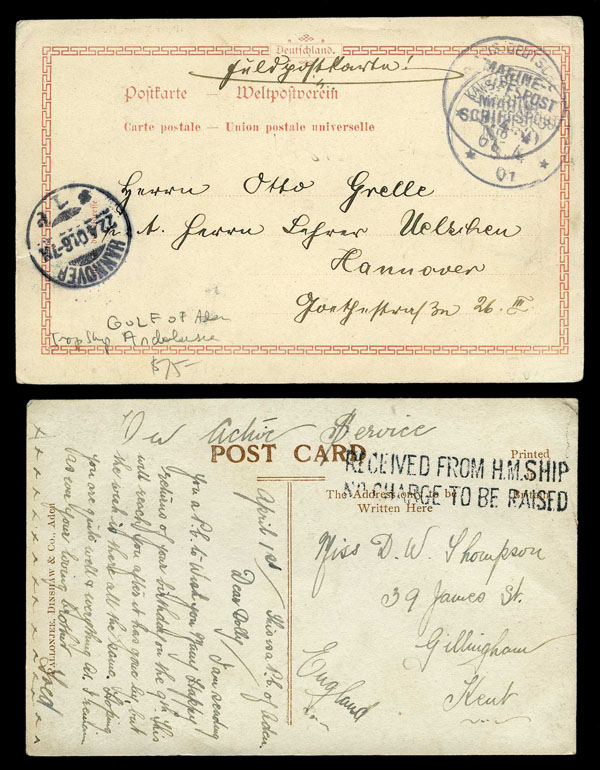 Deutschland.
Feldpostkarte!
Postkarte — Weltpostverein
Carte postale — Union postale universelle
MARINE-
SCHIFFSPOST
01
Herrn Otto Grelle
Herrn Lehrer Uelschen
Hannover
Goethestraße 26. III
HANNOVER
22.4.01.6-7N.
GULF OF Aden
Troop Ship Andalusia
$75-
On Active Service
POST CARD
Printed
RECEIVED FROM H.M. SHIP
NO CHARGE TO BE RAISED
The Address only to be
Written Here
Miss D. W. Thompson
39 James St.
Gillingham
Kent
England
April 1st
This is a P.c. of Aden.
Dear Dolly
I am sending
you a P.c. to Wish you Many Happy
returns of your birthday on the 9th. This
will reach you after it has gone by, but
the wish is there all the same. Hoping
you are quite well & everything as. I remain
as ever your loving Brother
Fred
x x x x x x x x x x x x x x
HENSHAW & Co., Aden